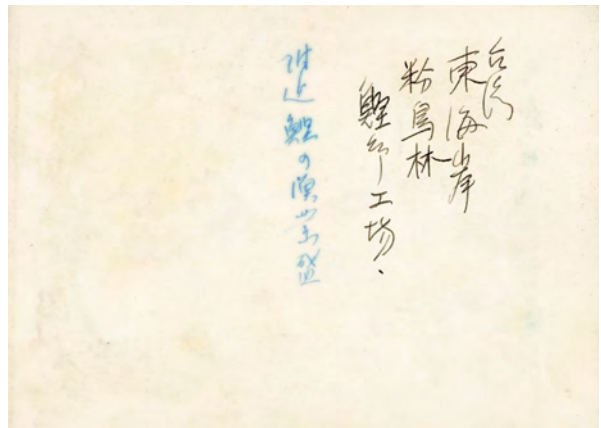 台湾
東海岸
粉鳥林
鰹節工場、
附近鰹の漁業盛